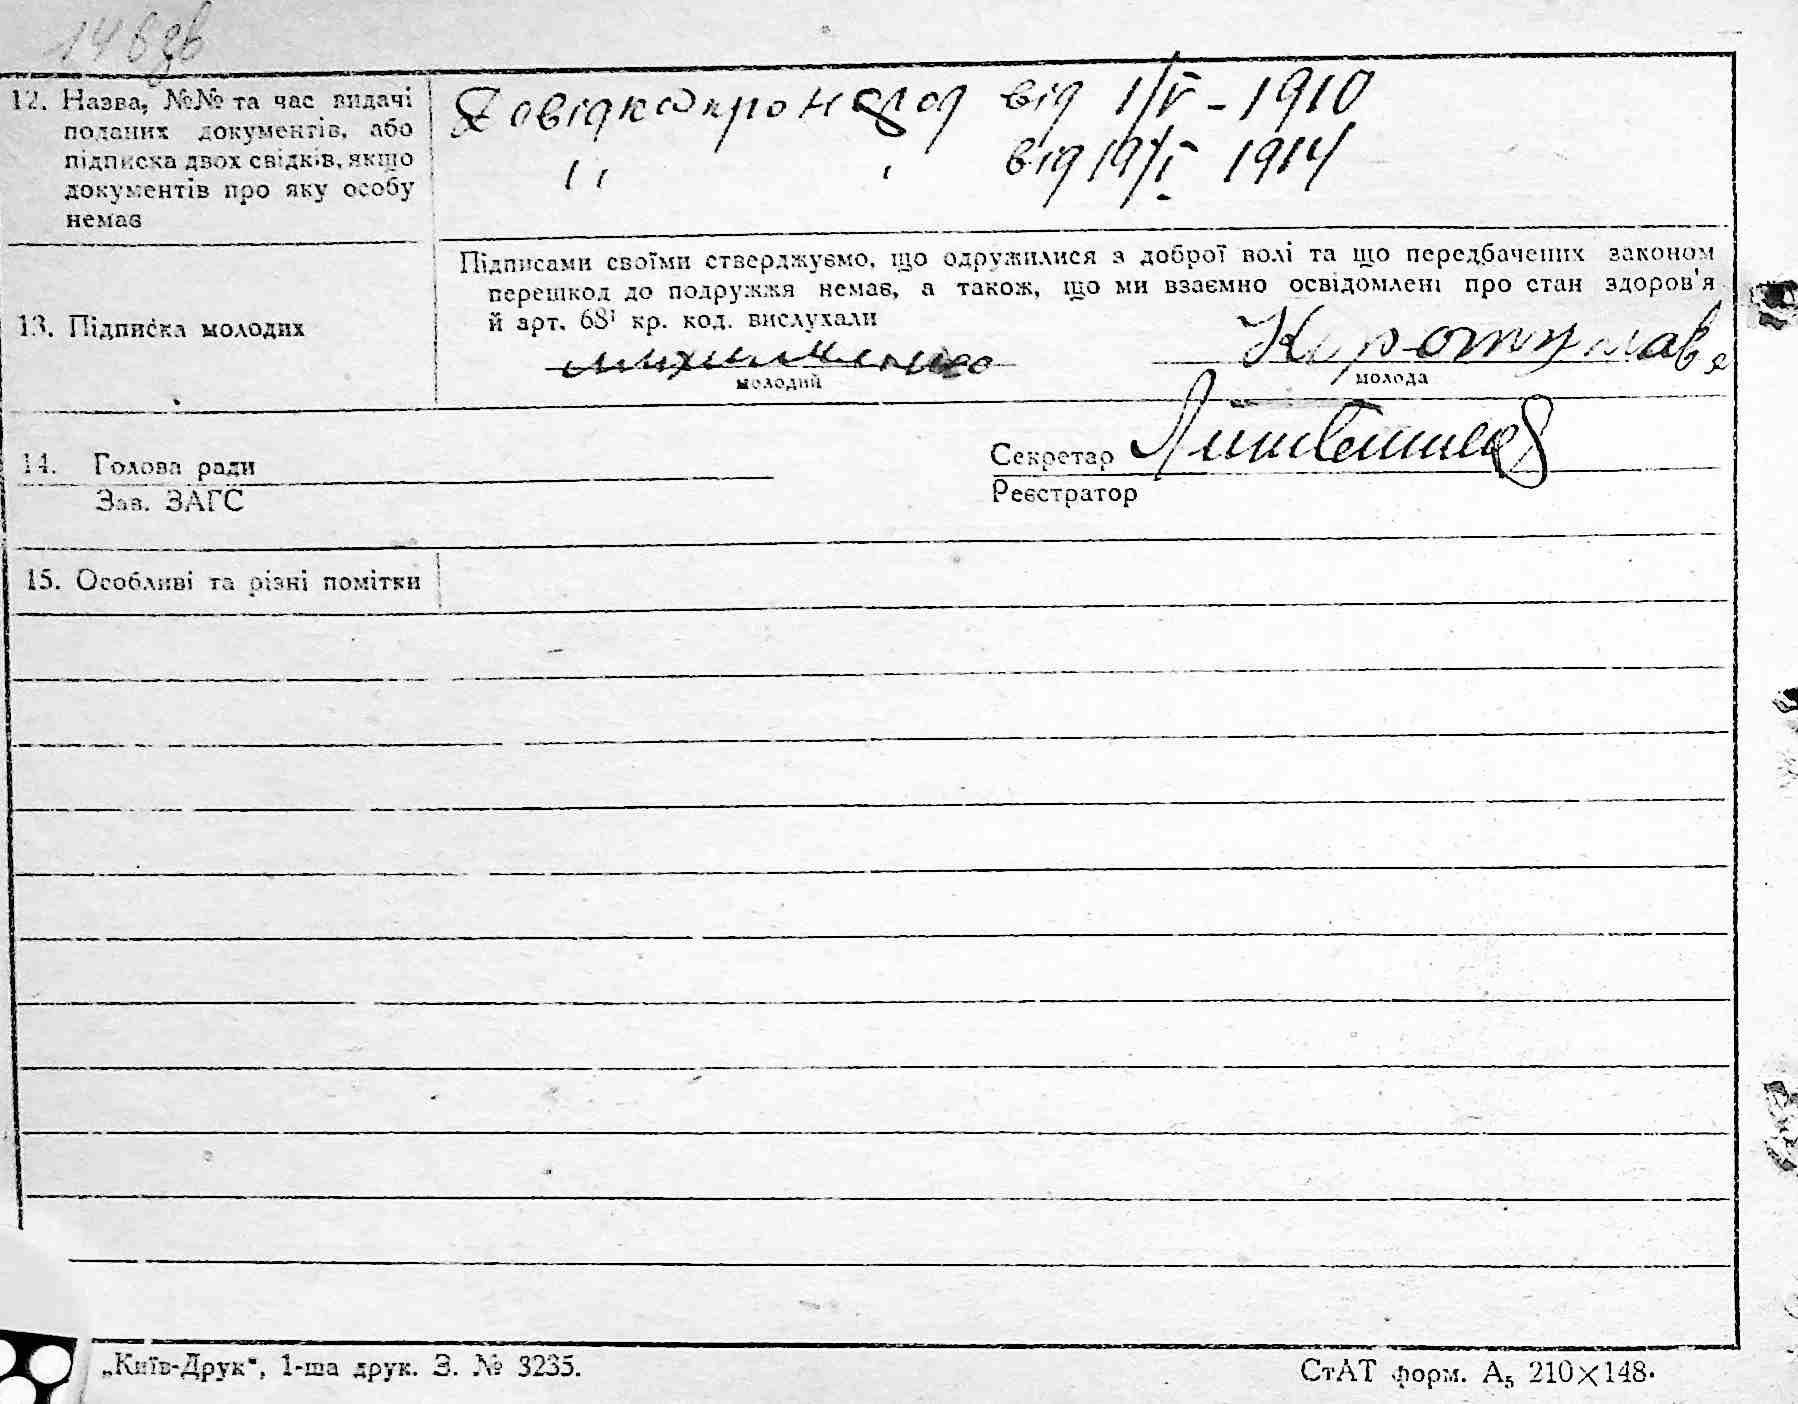 14 взв
12. Назва, №№ та час видачі
поданих документів, або
підписка двох свідків, якщо
документів про яку особу
немає
Довідка про народ від 1/V - 1910
" " від 19/I 1914
Підписами своїми стверджуємо, що одружилися з доброї волі та що передбачених законом
перешкод до подружжя немає, а також, що ми взаємно освідомлені про стан здоров'я
й арт. 68¹ кр. код. вислухали
13. Підписка молодих
молодий
молода
14. Голова ради
Секретар
Зав. ЗАГС
Реєстратор
15. Особливі та різні помітки
„Київ-Друк“, 1-ша друк. З. № 3235.
СтАТ форм. А₅ 210×148.